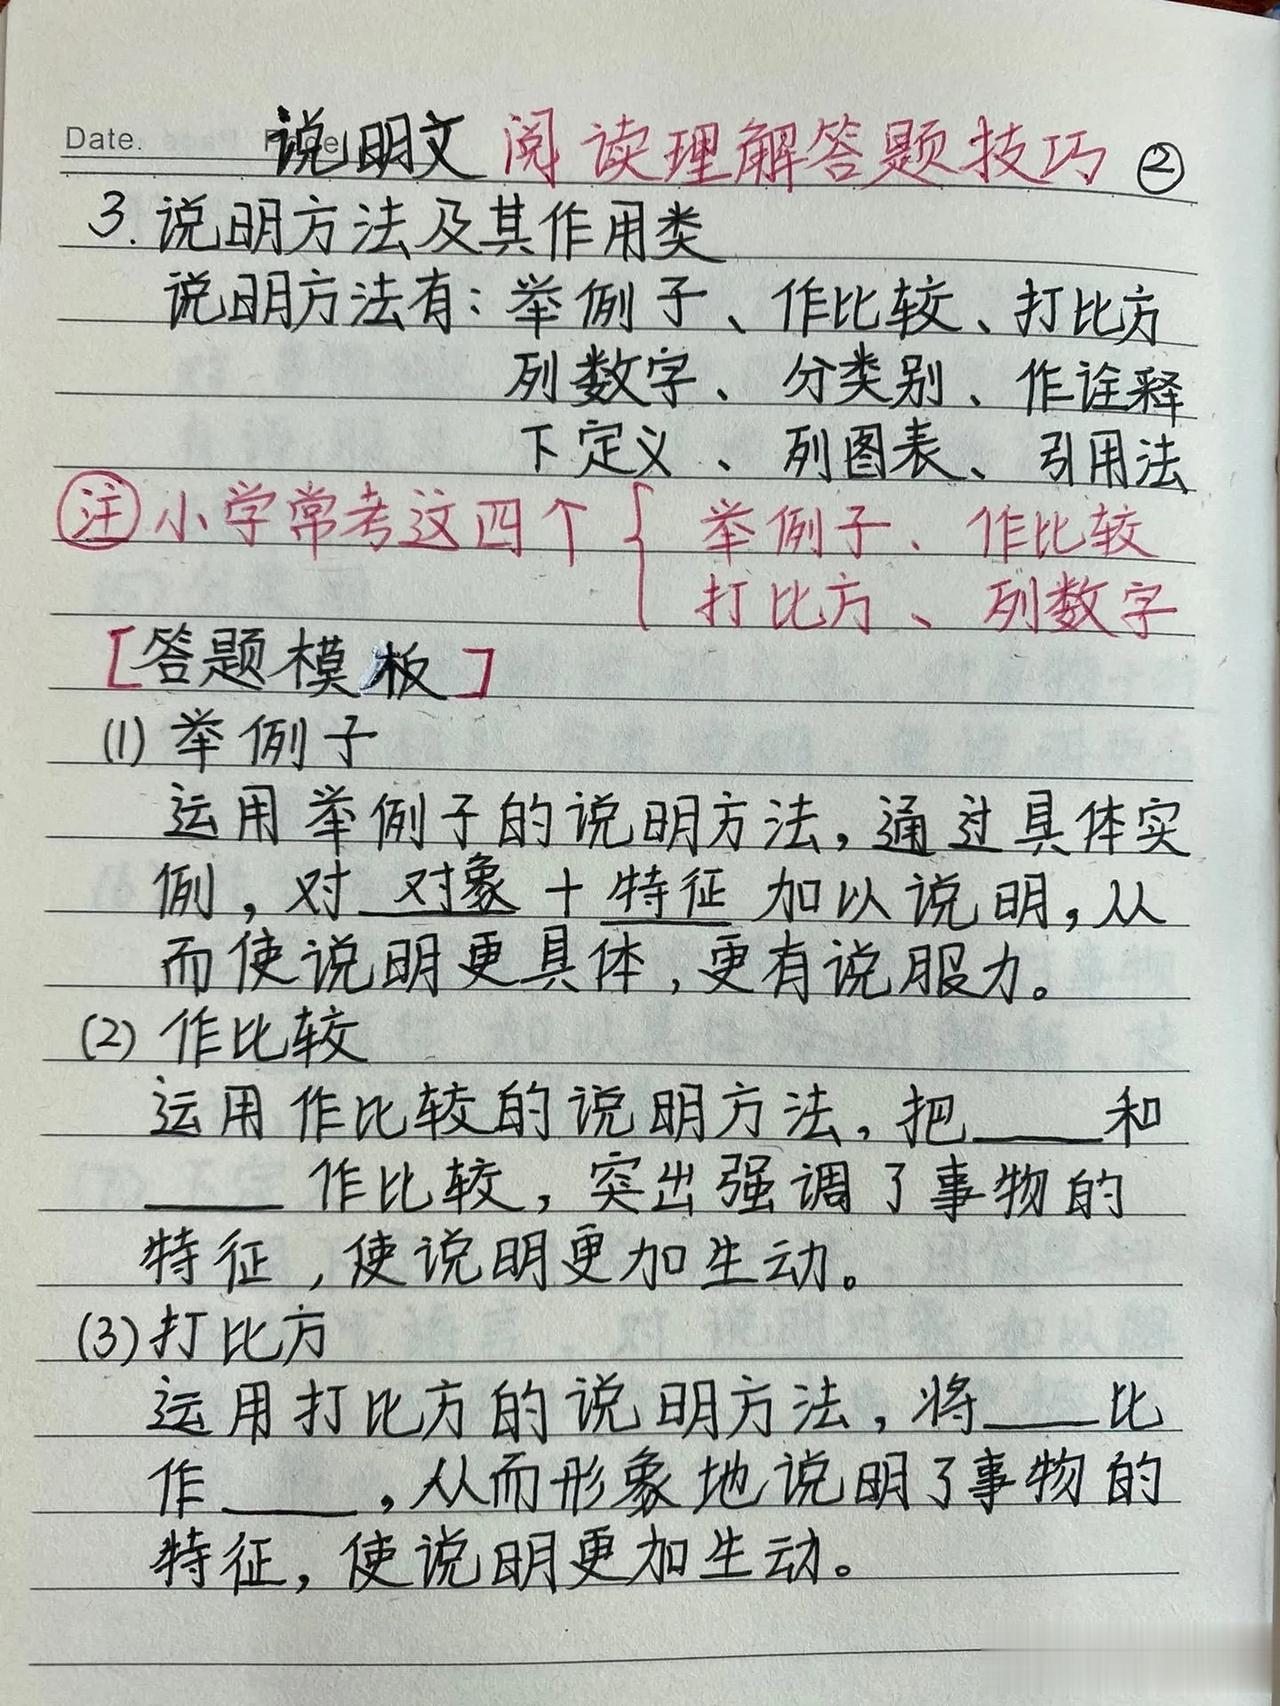 Date.
说明文阅读理解答题技巧②
3.说明方法及其作用类
说明方法有：举例子、作比较、打比方
列数字、分类别、作诠释
下定义、列图表、引用法
注 小学常考这四个{举例子、作比较
打比方、列数字
[答题模板]
(1)举例子
运用举例子的说明方法，通过具体实
例，对 对象 + 特征 加以说明，从
而使说明更具体，更有说服力。
(2)作比较
运用作比较的说明方法，把____和
____作比较，突出强调了事物的
特征，使说明更加生动。
(3)打比方
运用打比方的说明方法，将____比
作____，从而形象地说明了事物的
特征，使说明更加生动。